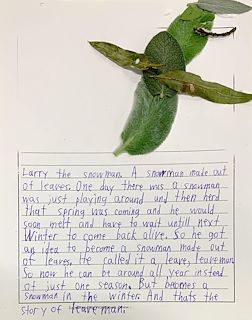 Larry the snowman. A snowman made out
of leaves. One day there was a snowman
was just playing around and then herd
that spring was coming and he would
soon melt and have to wait untill next
Winter to come back alive. So he got
an idea to become a snowman made out
of leaves, He called it a leave, leave man.
So now he can be around all year instead
of just one season. But becomes a
snowman in the winter. And thats the
story of leave man.